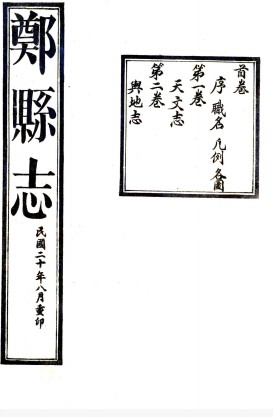 首卷
序 職名 凡例 各圖
第一卷
天文志
第二卷
輿地志
鄭縣志
民國二十年八月重印